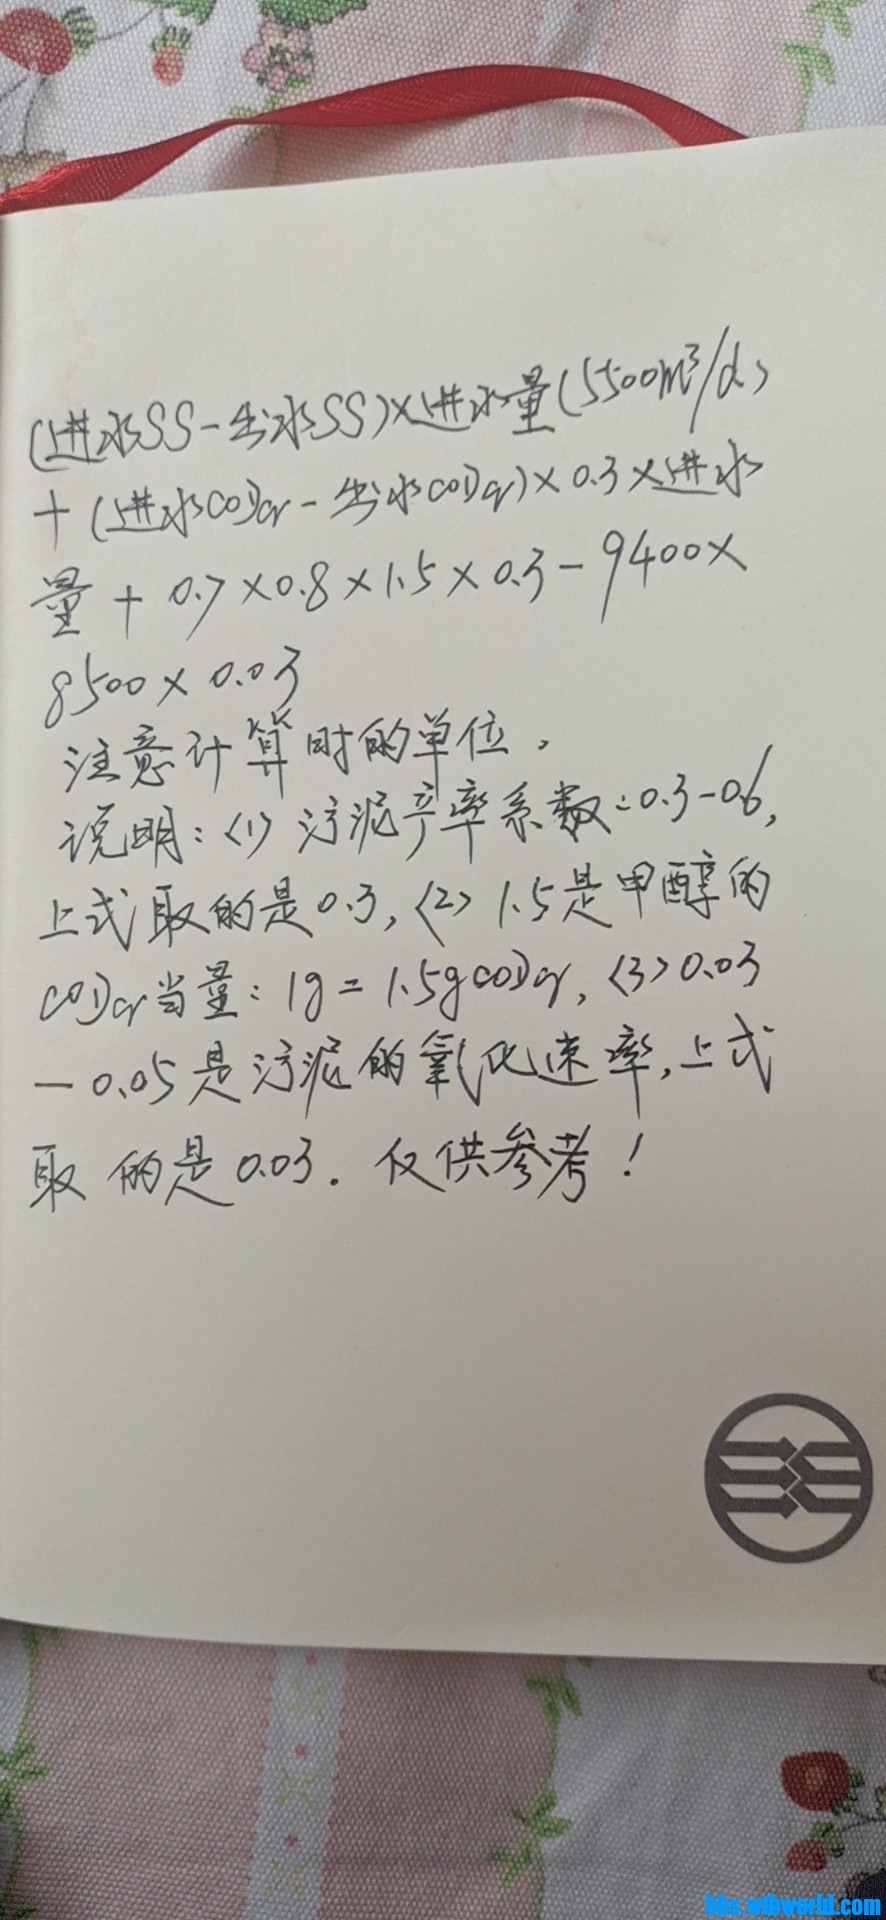 (进水SS-出水SS)×进水量(5500m³/d)
+(进水CODcr-出水CODcr)×0.3×进水
量+0.7×0.8×1.5×0.3-9400×
8500×0.03
注意计算时的单位.
说明:<1>污泥产率系数:0.3-0.6,
上式取的是0.3,<2>1.5是甲醇的
CODcr当量:1g=1.5gCODcr,<3>0.03
-0.05是污泥的氧化速率,上式
取的是0.03.仅供参考!
bbs.wibworld.com